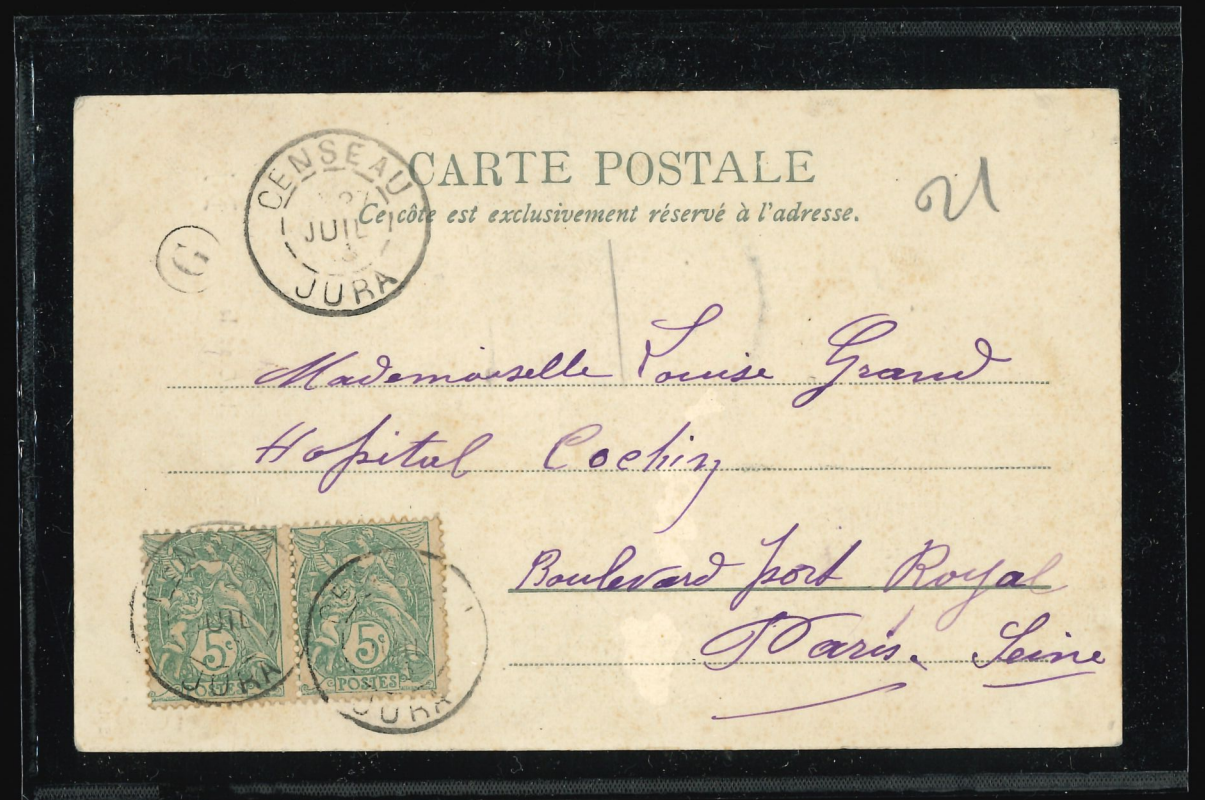 CARTE POSTALE
Ce côté est exclusivement réservé à l'adresse.
CENSEAU
JUIL
JURA
G
21
Mademoiselle Louise Grand
Hopital Cochin
Boulevard port Royal
Paris. Seine
CEN
UIL
JURA
5c
5c
POSTES
JURA